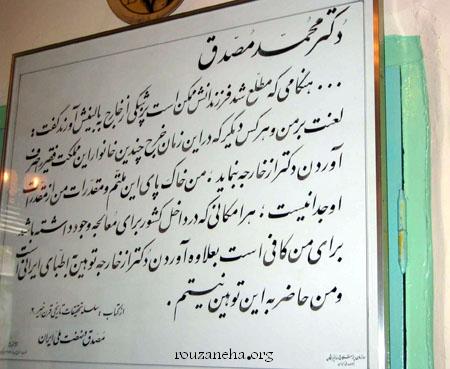 دکتر محمد مصدق
... هنگامی که مطلع شد فرزندانش ممکن است پزشکی از خارج به بالینش آورند گفت :
لعنت بر من و هر کس دیگر که در این زمان خرج چندین خانوار این مملکت فقیر صرف
آوردن دکتر از خارجه نماید ، من خاک پای این ملتم و مقدرات من از مقدرات
او جدا نیست ، هر امکانی که در داخل کشور برای معالجه وجود داشته باشد
برای من کافی است بعلاوه آوردن دکتر از خارجه توهین به اطبای ایرانی است
و من حاضر به این توهین نیستم .
از کتاب : سلسله تحقیقات تاریخی قرن اخیر
مصدق و نهضت ملی ایران
rouzaneha.org